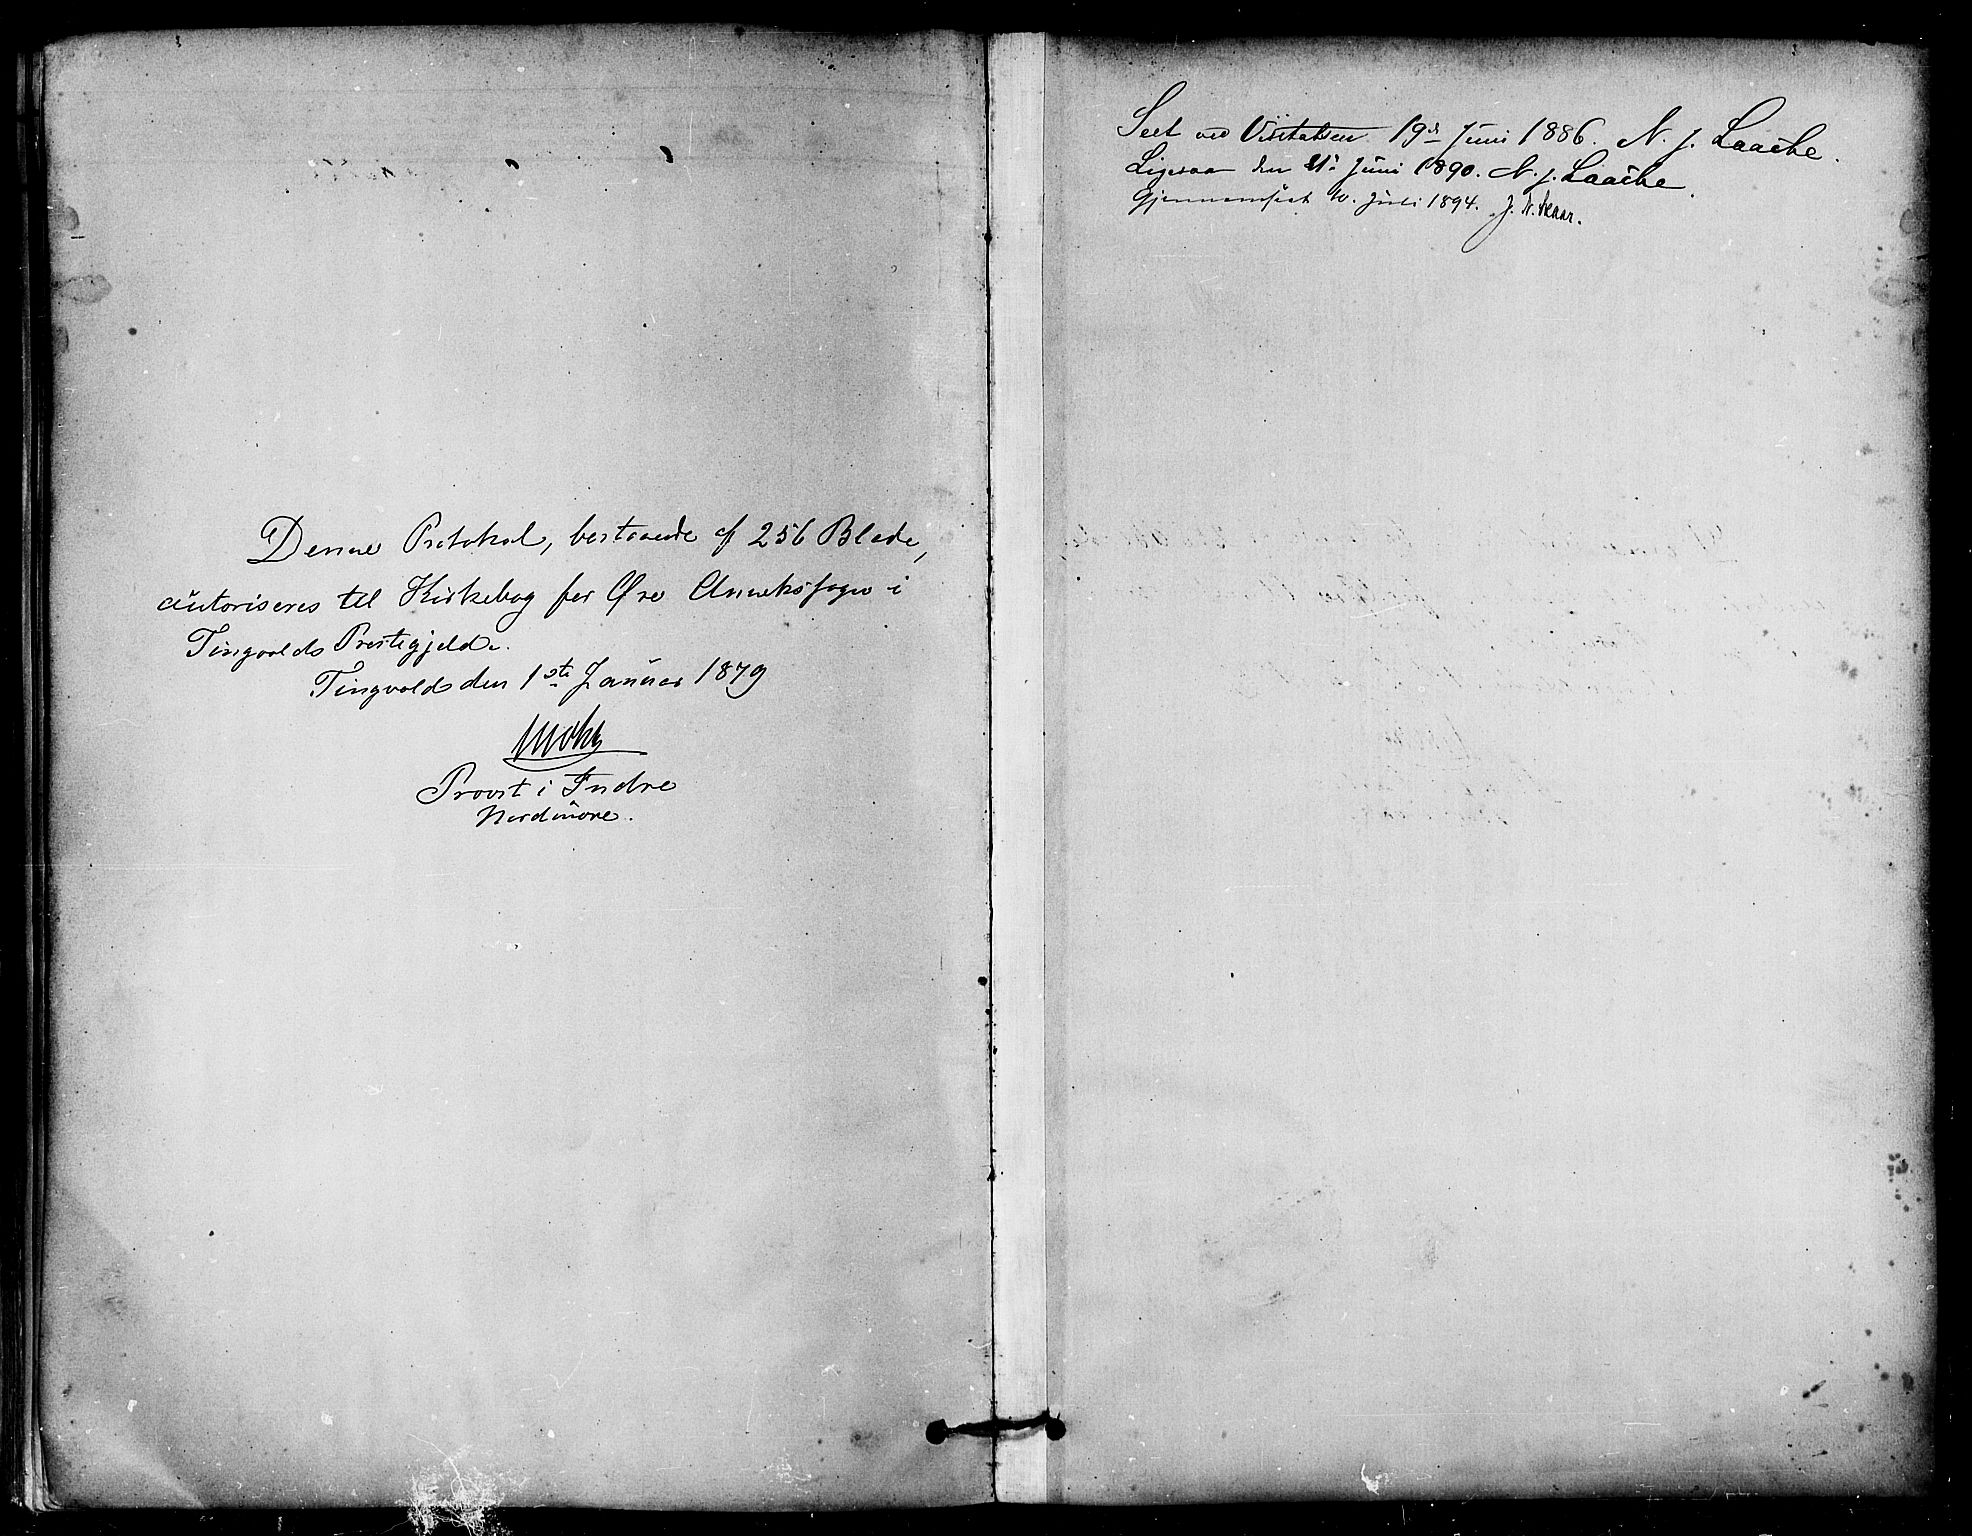 Denne Protokol, bestaaende af 256 Blade,
autoriseres til Kirkebog for Øre Annekssogn i
Tingvolds Præstegjeld.
Tingvold den 1ste Januar 1879
Provst i Indre
Nordmøre.
Seet ved Visitatsen 19de Juni 1886. N. J. Laache.
Ligesaa den 21de Juni 1890. N. J. Laache.
Gjennemseet 10. Juli 1894. J. N. Skaar.